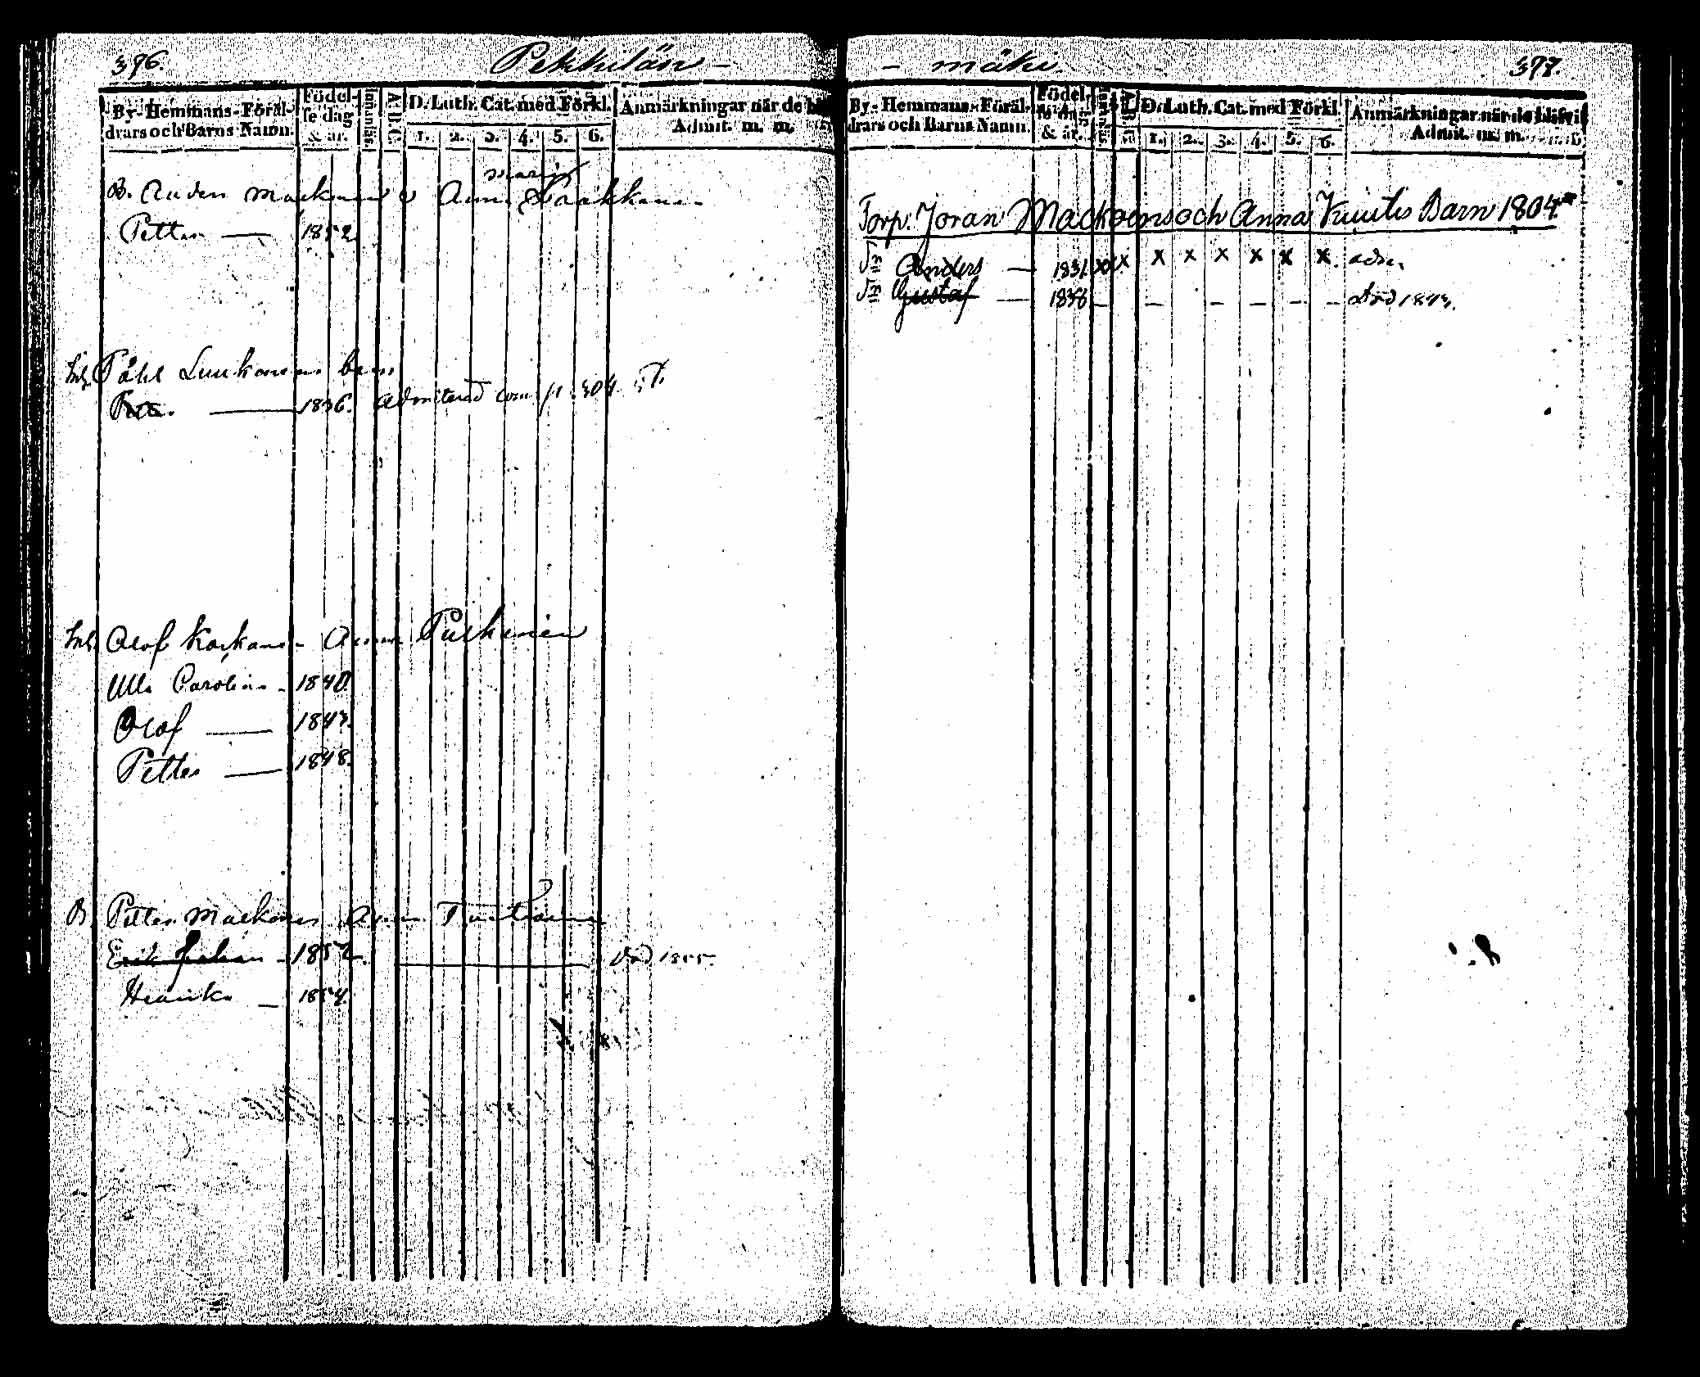 396.
Pekkilän-
By- Hemmans- Föräl-
drars och Barns Namn.
Födel-
se dag
& år.
Innanläs.
A.B.C.
D. Luth. Cat. med Förkl.
1. 2. 3. 4. 5. 6.
Anmärkningar när de bli
Admit. m. m.
B. Anders Mackonen o Anna Paakkonen
Petter — 1852
Inh. Påhl Luukonens barn
Petter. — 1836. Admitterad
Inh. Olof Kaikonen - Anna Pulkinen
Ulla Carolina - 1840
Olof — 1843.
Petter — 1848.
B. Petter Mackonen Anna
Erik Johan - 1852. — Död 1855.
Henrik — 1854.
- mäki.
397.
By- Hemmans- Föräl-
drars och Barns Namn.
Födel-
se da
& år.
D. Luth. Cat. med Förkl.
1. 2. 3. 4. 5. 6.
Anmärkningar när de blifvit
Admit. m. m.
Torp. Jöran Mackoens och Anna Knuutis Barn 1804
Anders — 1831. x x x x x x x x. adm.
Gustaf — 1836 — — — — — — död 1843.